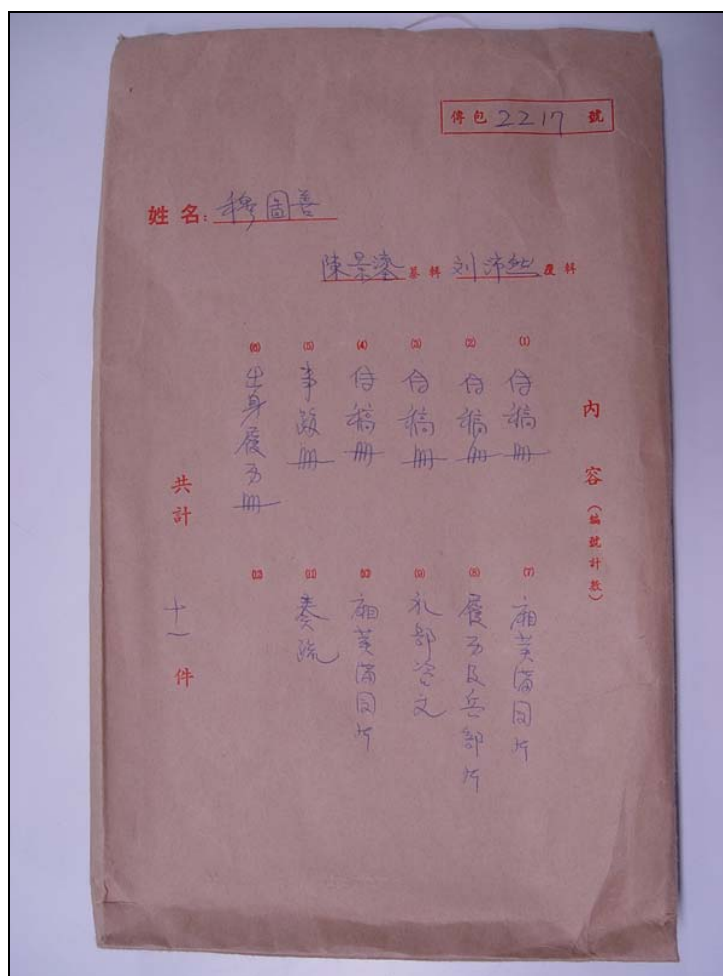 傳包 2217 號
姓名: 穆圖善
內容(編號計數)
(1) 传稿冊
(2) 传稿冊
(3) 传稿冊
(4) 传稿冊
(5) 事蹟冊
(6) 出身履历冊
(7) 廂黃滿回片
(8) 履历及兵部片
(9) 礼部咨文
(10) 廂黃滿回片
(11) 奏疏
(12)
共計 十一 件